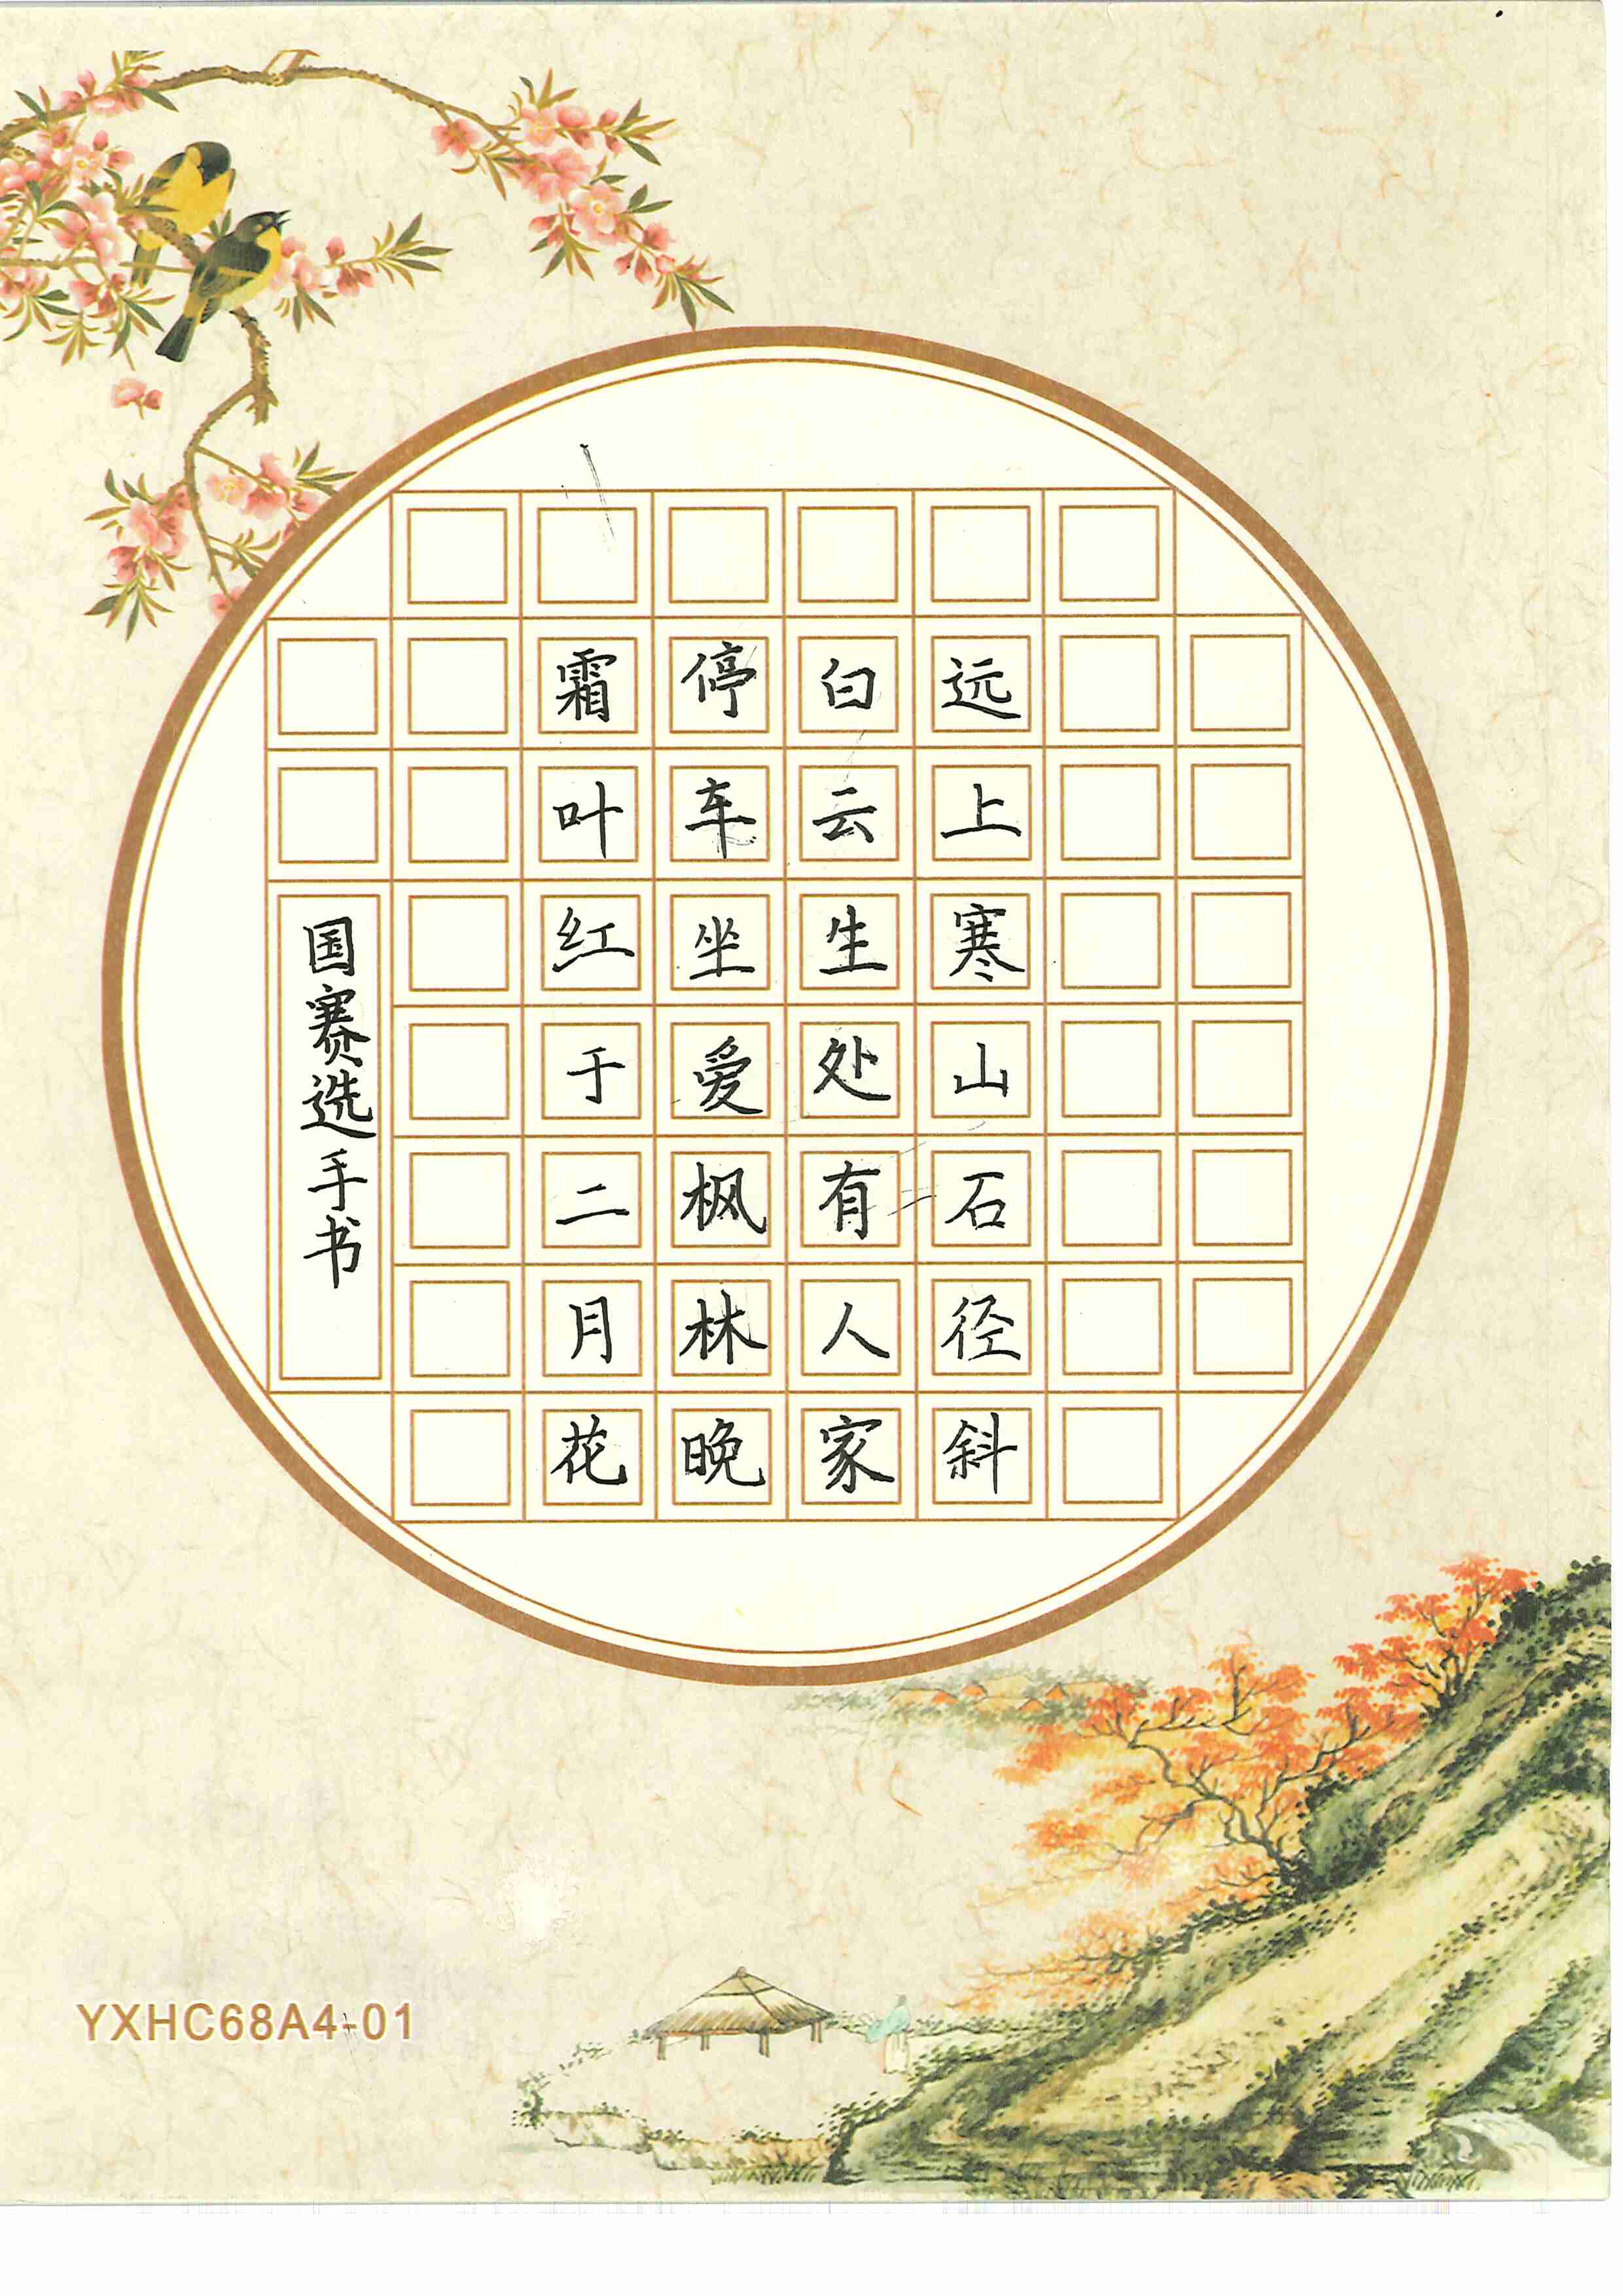 远上寒山石径斜
白云生处有人家
停车坐爱枫林晚
霜叶红于二月花
国赛选手书
YXHC68A4-01